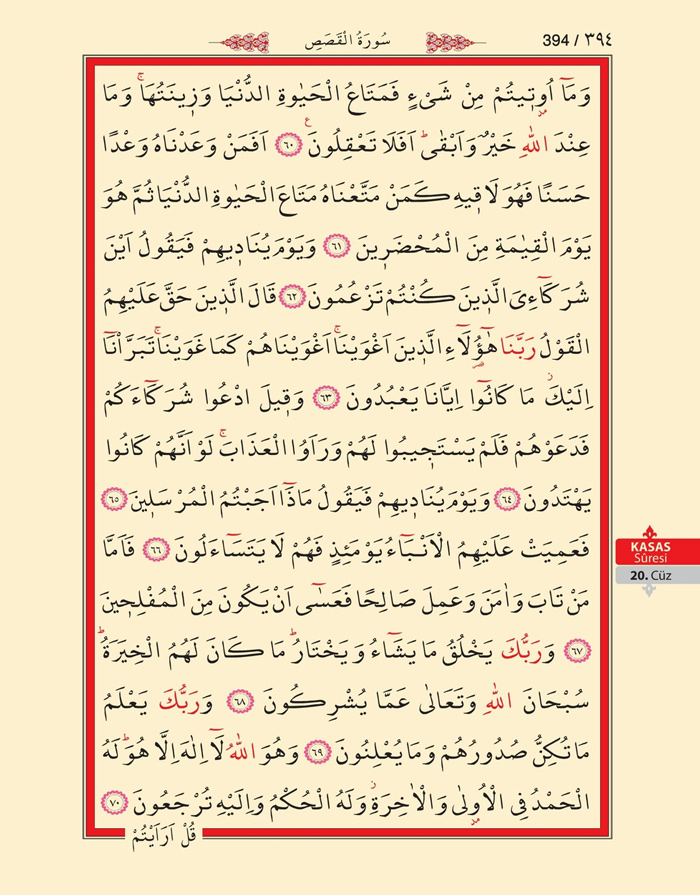 394 / ٣٩٤
سُورَةُ الْقَصَصِ
وَمَٓا اُو۫ت۪يتُمْ مِنْ شَيْءٍ فَمَتَاعُ الْحَيٰوةِ الدُّنْيَا وَز۪ينَتُهَاۚ وَمَا
عِنْدَ اللّٰهِ خَيْرٌ وَاَبْقٰىۜ اَفَلَا تَعْقِلُونَ۟ ﴿٦٠﴾ اَفَمَنْ وَعَدْنَاهُ وَعْدًا
حَسَنًا فَهُوَ لَاق۪يهِ كَمَنْ مَتَّعْنَاهُ مَتَاعَ الْحَيٰوةِ الدُّنْيَا ثُمَّ هُوَ
يَوْمَ الْقِيٰمَةِ مِنَ الْمُحْضَر۪ينَ ﴿٦١﴾ وَيَوْمَ يُنَاد۪يهِمْ فَيَقُولُ اَيْنَ
شُرَكَٓاءِيَ الَّذ۪ينَ كُنْتُمْ تَزْعُمُونَ ﴿٦٢﴾ قَالَ الَّذ۪ينَ حَقَّ عَلَيْهِمُ
الْقَوْلُ رَبَّنَا هٰٓؤُ۬لَٓاءِ الَّذ۪ينَ اَغْوَيْنَاۚ اَغْوَيْنَاهُمْ كَمَا غَوَيْنَاۚ تَبَرَّأْنَٓا
اِلَيْكَۘ مَا كَانُٓوا اِيَّانَا يَعْبُدُونَ ﴿٦٣﴾ وَق۪يلَ ادْعُوا شُرَكَٓاءَكُمْ
فَدَعَوْهُمْ فَلَمْ يَسْتَج۪يبُوا لَهُمْ وَرَاَوُا الْعَذَابَۚ لَوْ اَنَّهُمْ كَانُوا
يَهْتَدُونَ ﴿٦٤﴾ وَيَوْمَ يُنَاد۪يهِمْ فَيَقُولُ مَاذَٓا اَجَبْتُمُ الْمُرْسَل۪ينَ ﴿٦٥﴾
فَعَمِيَتْ عَلَيْهِمُ الْاَنْبَٓاءُ يَوْمَئِذٍ فَهُمْ لَا يَتَسَٓاءَلُونَ ﴿٦٦﴾ فَاَمَّا
مَنْ تَابَ وَاٰمَنَ وَعَمِلَ صَالِحًا فَعَسٰٓى اَنْ يَكُونَ مِنَ الْمُفْلِح۪ينَ
﴿٦٧﴾ وَرَبُّكَ يَخْلُقُ مَا يَشَٓاءُ وَيَخْتَارُۜ مَا كَانَ لَهُمُ الْخِيَرَةُۜ
سُبْحَانَ اللّٰهِ وَتَعَالٰى عَمَّا يُشْرِكُونَ ﴿٦٨﴾ وَرَبُّكَ يَعْلَمُ
مَا تُكِنُّ صُدُورُهُمْ وَمَا يُعْلِنُونَ ﴿٦٩﴾ وَهُوَ اللّٰهُ لَٓا اِلٰهَ اِلَّا هُوَۜ لَهُ
الْحَمْدُ فِي الْاُو۫لٰى وَالْاٰخِرَةِۘ وَلَهُ الْحُكْمُ وَاِلَيْهِ تُرْجَعُونَ ﴿٧٠﴾
قُلْ اَرَاَيْتُمْ
KASAS
Sûresi
20. Cüz